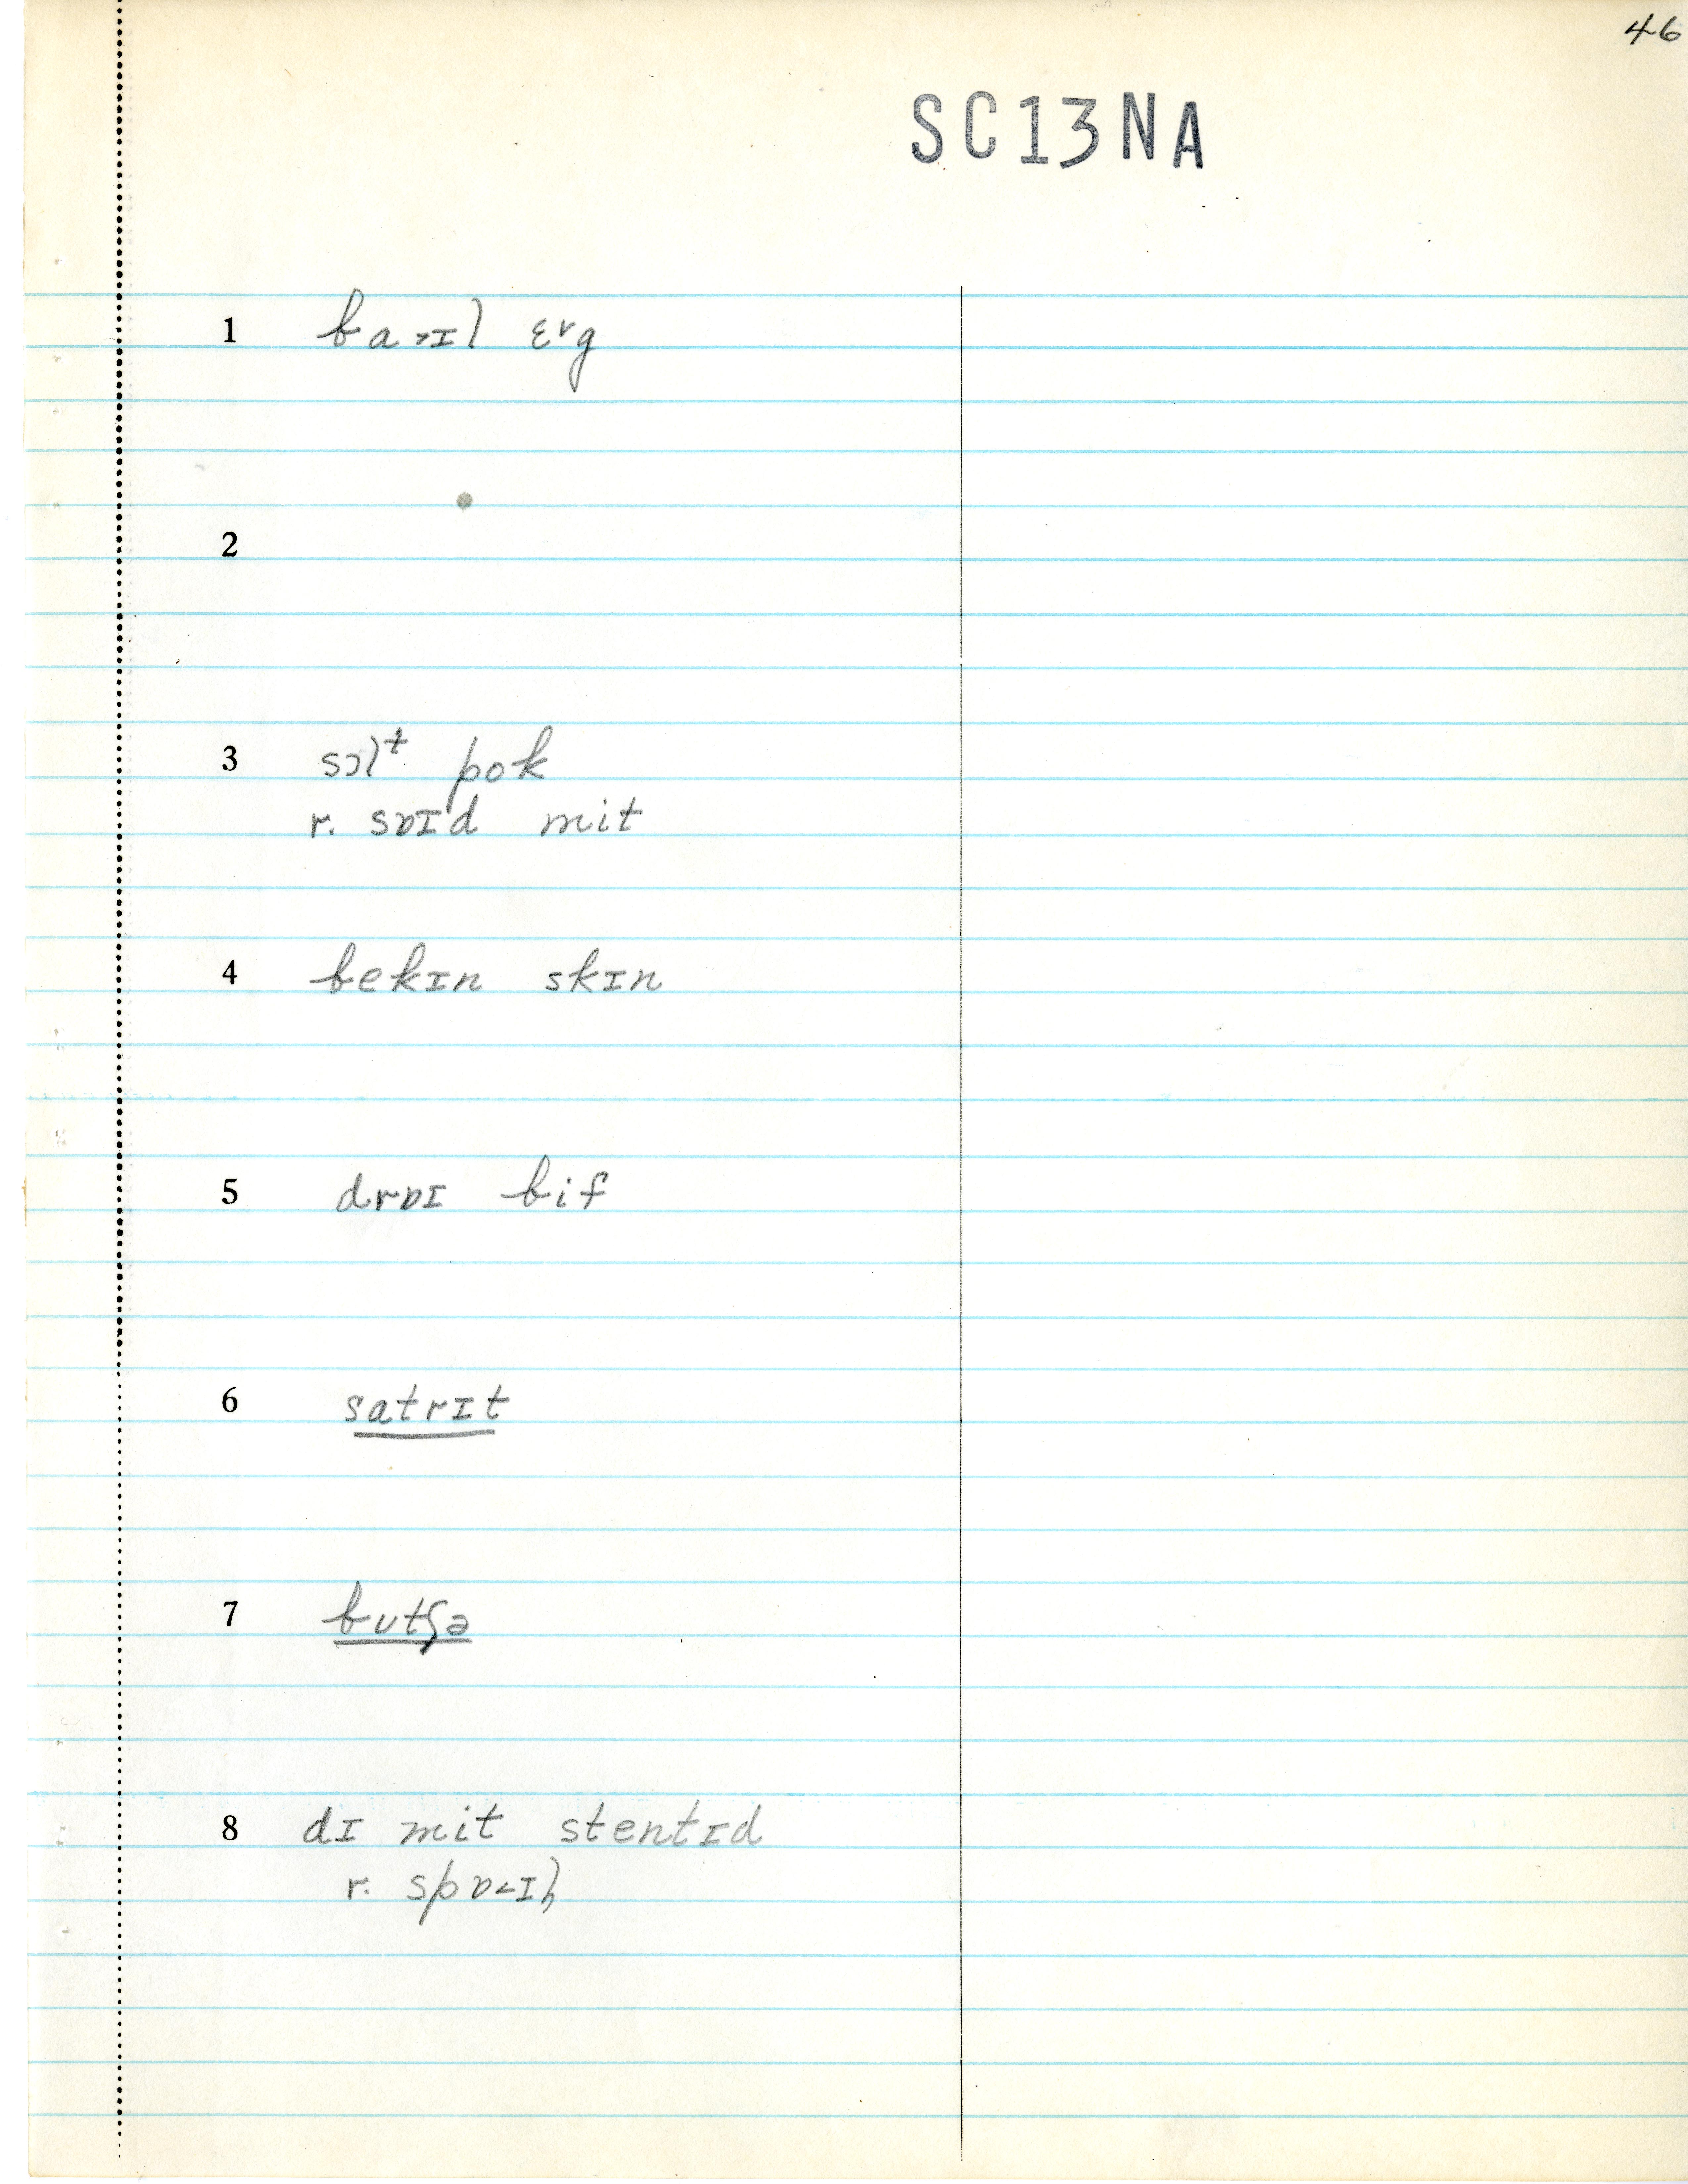 46
SC13NA
1 baɪl ɛᵛg
2
3 sɔlᵗ pok
r. sɒɪd mit
4 bekɪn skɪn
5 drɒɪ bif
6 satrɪt
7 butʃə
8 dɪ mit stentɪd
r.